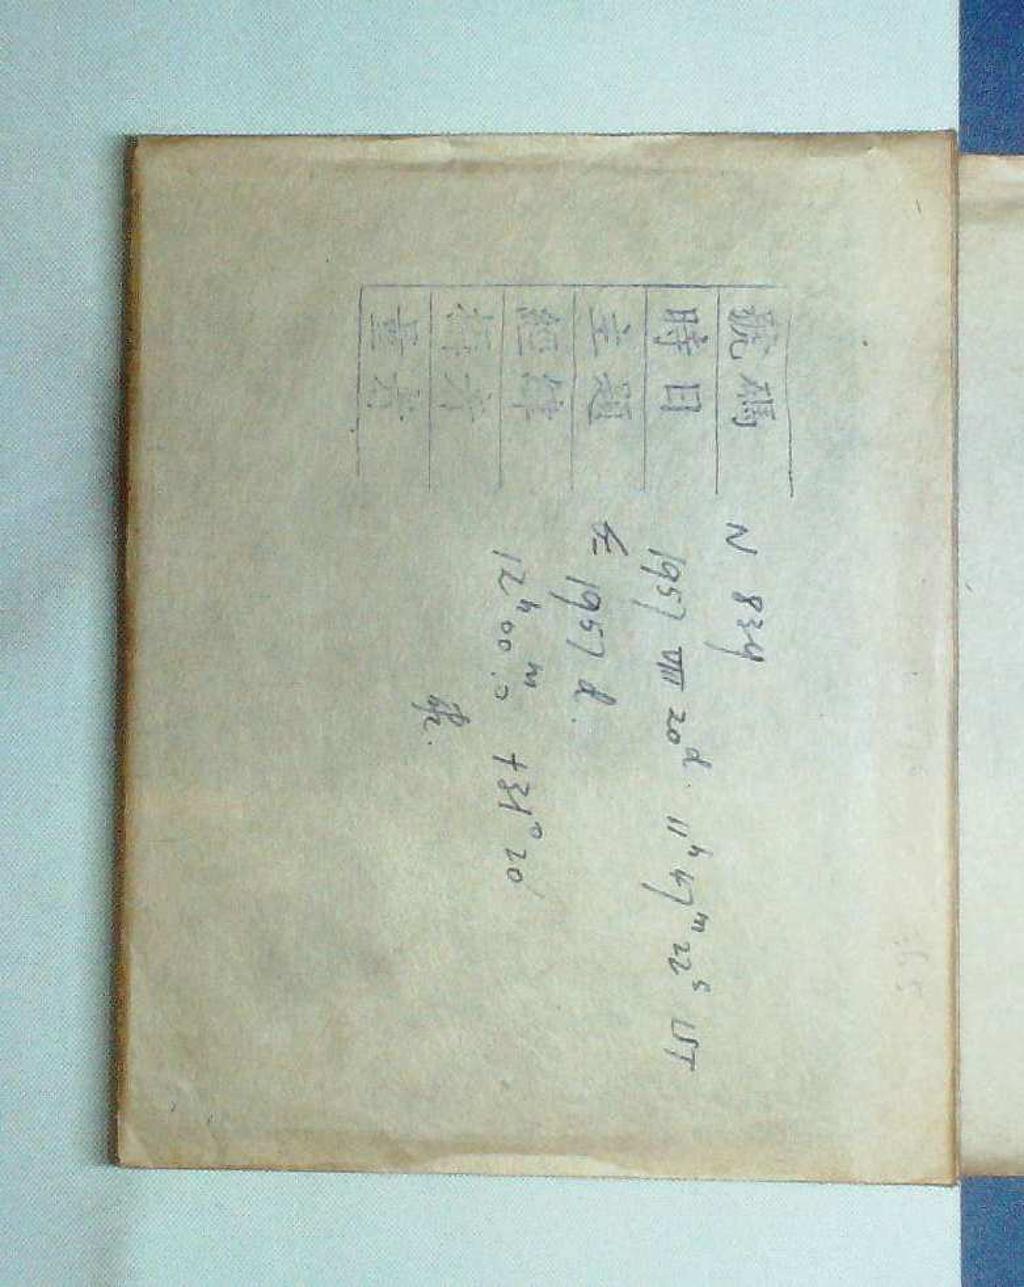 號碼 N 834
時日 1957 VIII 20d. 11h 47m 22s UT
主題 1957 d.
經緯 12h 00m.0 +31° 20'